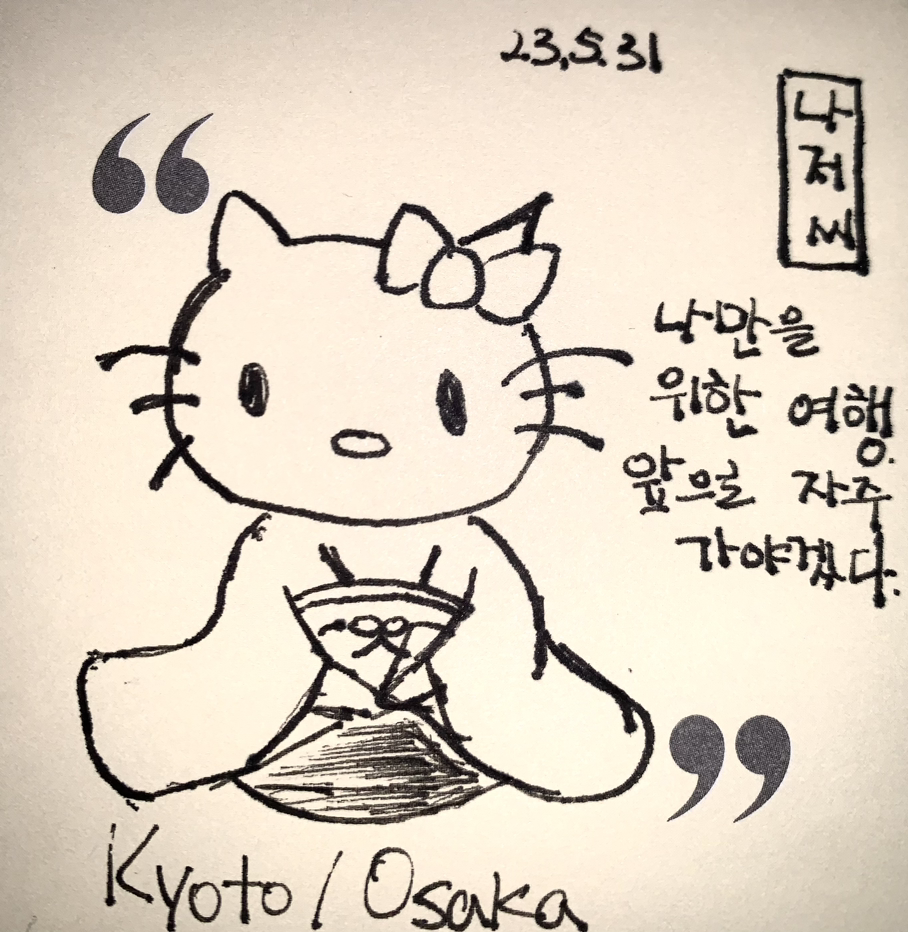 23.5.31
나저씨
나만을
위한 여행.
앞으로 자주
가야겠다.
Kyoto / Osaka